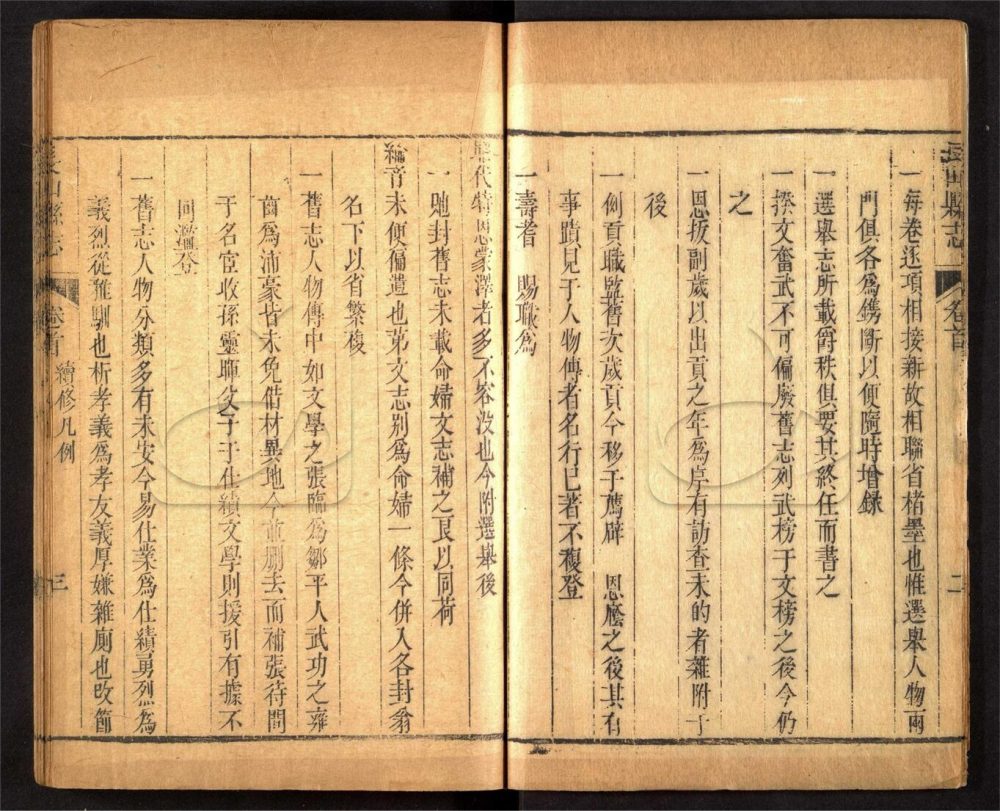 長山縣志
卷首
二
一每卷逐項相接新故相聯省楮墨也惟選舉人物兩
門俱各為鐫斷以便隨時增錄
一選舉志所載爵秩俱要其終任而書之
一揆文奮武不可偏廢舊志列武榜于文榜之後今仍
之
一恩拔副歲以出貢之年為序有訪查未的者雜附于
後
一例貢職監舊次歲貢今移于薦辟 恩廕之後其有
事蹟見于人物傳者名行巳著不複登
一壽耆 賜職為
累代特恩蒙澤者多不容没也今附選舉後
一貤封舊志未載命婦文志補之良以同荷
綸音未便偏遺也苐文志别為命婦一條今併入各封翁
名下以省繁複
一舊志人物傳中如文學之張臨為鄒平人武功之雍
齒為沛豪皆未免借材異地今並刪去而補張待問
于名宦收孫靈暉父子于仕績文學則援引有據不
同濫登
一舊志人物分類多有未安今易仕業為仕績勇烈為
義烈從雅馴也析孝義為孝友義厚嫌雜廁也改節
長山縣志
卷首
續修凡例
三